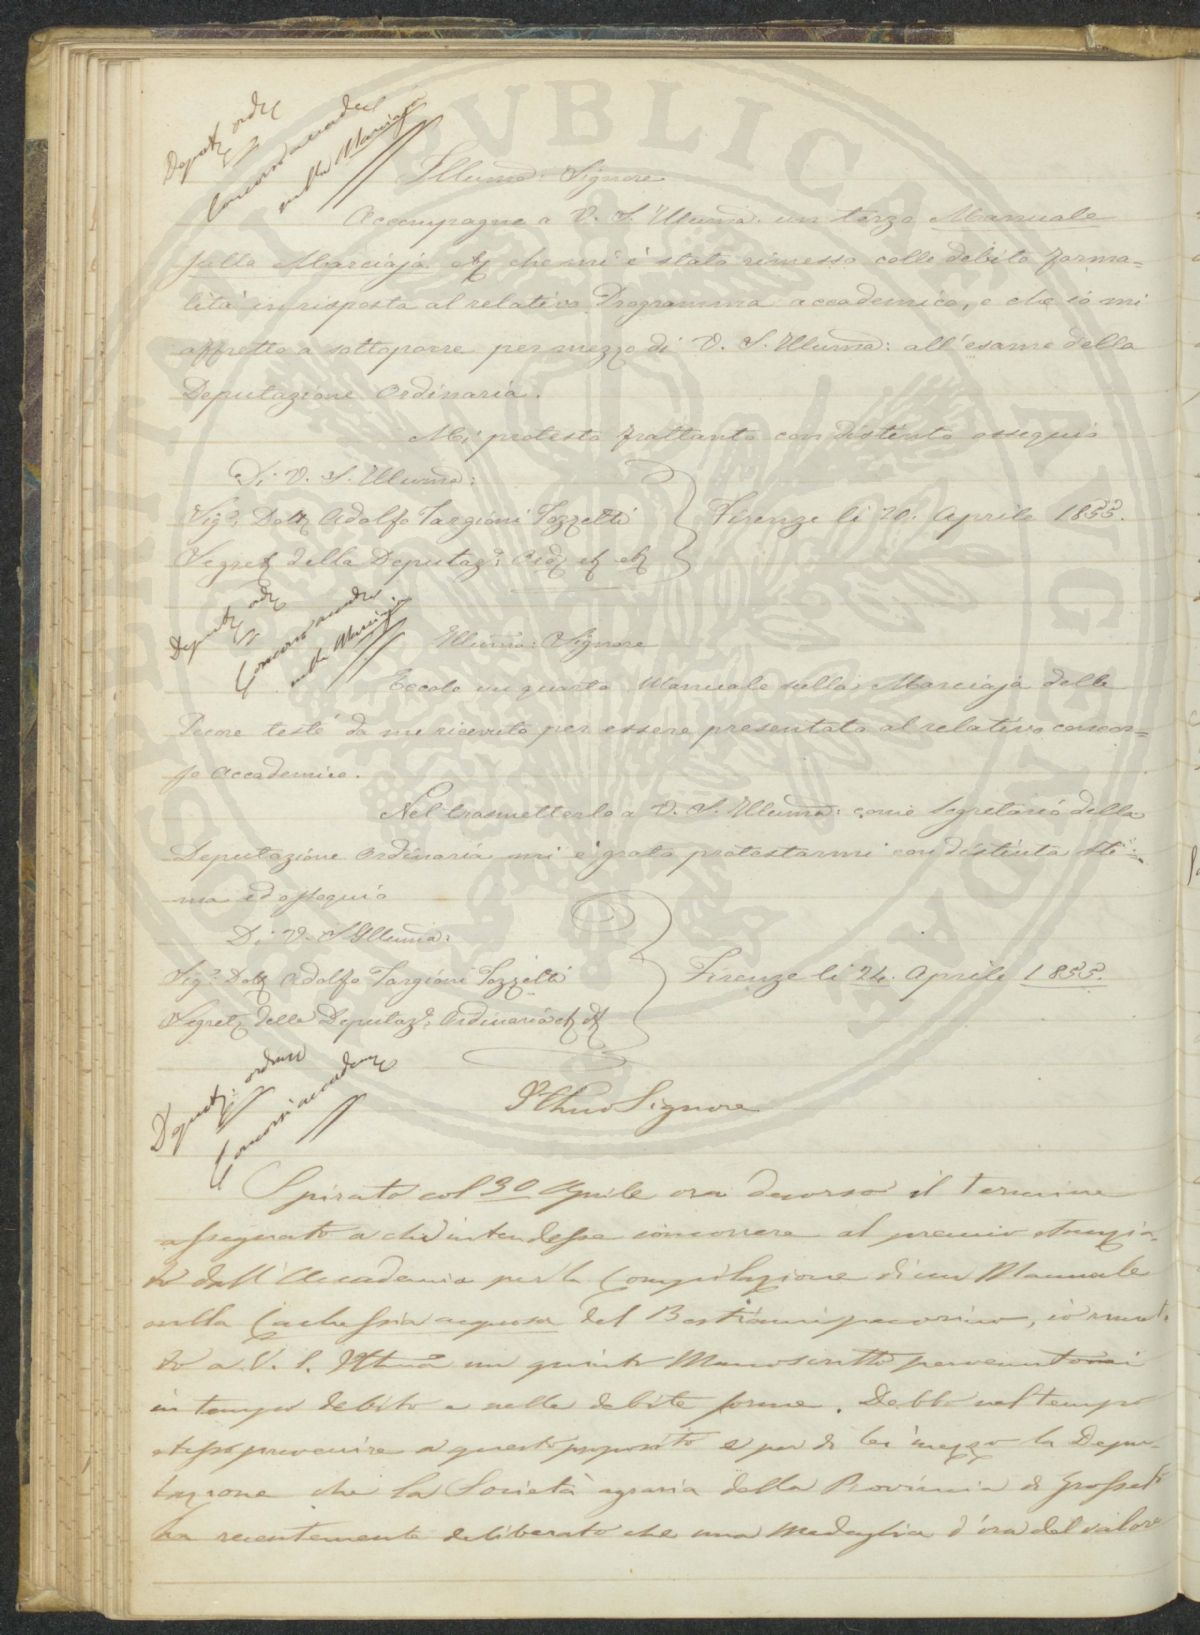 Deput. ord.
Concorso accadco
sulla Marciaja
Illumo: Signore
Accompagno a V. S. Illuma: un terzo Manuale
sulla Marciaja che mi è stato rimesso colle debite forma=
lità in risposta al relativo Programma accademico, e che io mi
affretto a sottoporre per mezzo di V. S. Illuma: all'esame della
Deputazione Ordinaria.
Mi protesto frattanto con distinto ossequio
Di V. S. Illuma:
Sigr. Dott. Adolfo Targioni Tozzetti
Segret. della Deputaz: Ord.
Firenze li 20. Aprile 1855.
Deput. ord.
Concorso accadco
sulla Marciaja
Illumo: Signore
Eccole un quarto Manuale sulla Marciaja delle
Pecore testè da me ricevuto per essere presentato al relativo concor=
so Accademico.
Nel trasmetterlo a V. S. Illuma: come Segretario della
Deputazione Ordinaria mi è grato protestarmi con distinta sti=
ma ed ossequio
Di V. S. Illuma:
Sigr. Dott. Adolfo Targioni Tozzetti
Segret. della Deputaz: Ordinaria
Firenze li 24. Aprile 1855.
Deputaz: ordinar
Concorsi accadem
Illmo Signore
Spirato col 30 Aprile ora decorso il termine
assegnato a chi intendesse concorrere al premio stanzia=
to dall'Accademia per la Compilazione di un Manuale
sulla Cachessia acquosa del Bestiame pecorino, io rimet=
to a V. S. Illma un quinto Manoscritto pervenutomi
in tempo debito e nelle debite forme. Debbo nel tempo
stesso prevenire a questo proposito e per di lei mezzo la Depu=
tazione che la Società agraria della Provincia di Grosseto
ha recentemente deliberato che una medaglia d'oro del valore